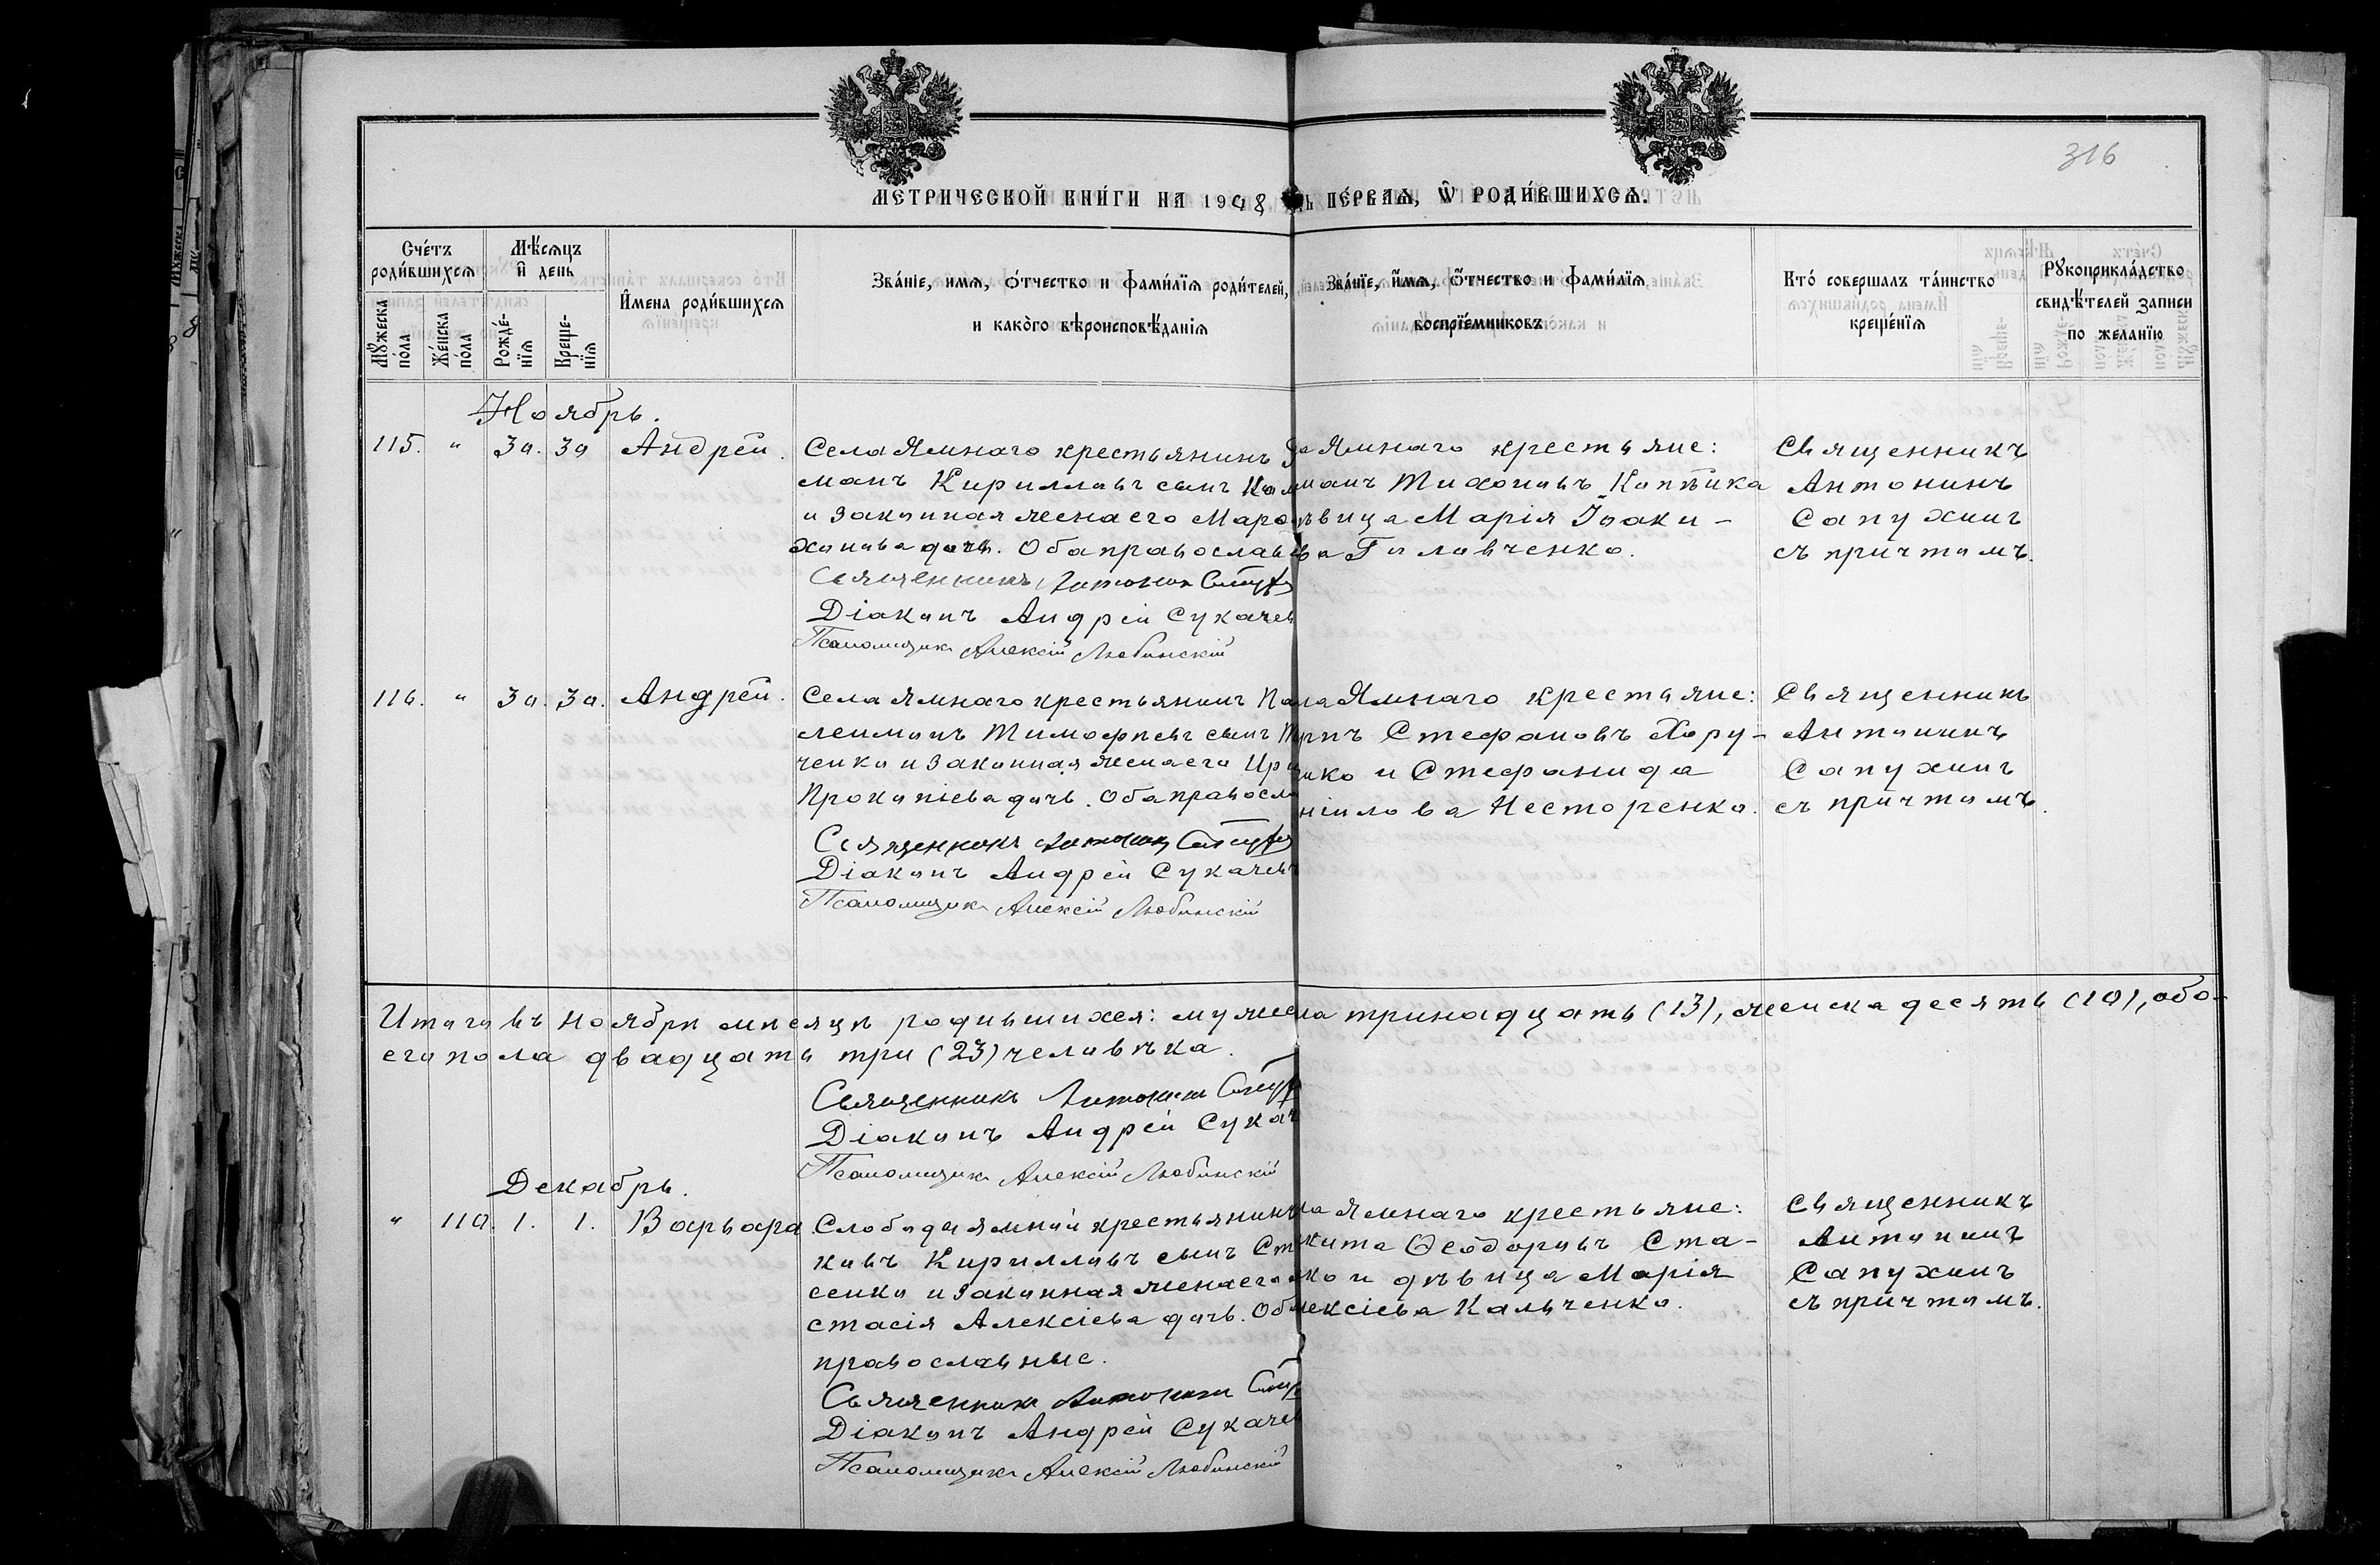 316
МЕТРИЧЕСКОЙ КНИГИ НА 1908
ПЕРВАЯ, Ѡ РОДИВШИХСЯ.
Счетъ родившихся
Мужеска пола
Женска пола
Мѣсяцъ и день
Рожденїя
Крещенїя
Имена родившихся
Званїе, имя, отчество и фамилїя родителей,
и какого вѣроисповѣданїя
Званїе, имя, отчество и фамилїя
воспрїемниковъ
Кто совершалъ таинство
крещенїя
Рукоприкладство
свидѣтелей записи
по желанїю
Ноябрь.
115. " 30. 30 Андрей.
Села Ямнаго крестьянинъ
манъ Кирилловъ сынъ
и законная жена его
хонова дочь. Оба православ
Священникъ Антонин
Діаконъ Андрей Сукачев
Псаломщикъ Алексій Любинскій
Ямнаго крестьяне:
Тихоновъ Копѣйка
вица Марія Іоаки-
ва Головченко.
Священникъ
Антонинъ
Сапухинъ
съ причтомъ.
116. " 30. 30. Андрей.
Села Ямнаго крестьянинъ
леимонъ Тимофѣевъ сынъ
ченко и законная жена его Ири
Прокопіева дочь. Оба правосла
Священникъ Антонин
Діаконъ Андрей Сукачевъ
Псаломщикъ Алексій Любинскій
ла Ямнаго крестьяне:
Стефановъ Хору-
и Стефанида
ніилова Несторенко.
Священникъ
Антонинъ
Сапухинъ
съ причтомъ.
Итого въ ноябрѣ мѣсяцѣ родившихся: мужеска тринадцать (13), женска десять (10), обо-
его пола двадцать три (23) человѣка.
Священникъ Антонин
Діаконъ Андрей Сукач
Псаломщикъ Алексій Любинскій
Декабрь.
" 110. 1. 1. Варвара.
Слободы Ямной крестьянинъ
ковъ Кирилловъ сынъ Ст
сенко и законная жена его
стасія Алексіева дочь. Об
православные.
Священникъ Антонин
Діаконъ Андрей Сукачев
Псаломщикъ Алексій Любинскій
Ямнаго крестьяне:
кита Ѳеодоровъ Ста-
ко и дѣвица Марія
лексіева Кальченко.
Священникъ
Антонинъ
Сапухинъ
съ причтомъ.